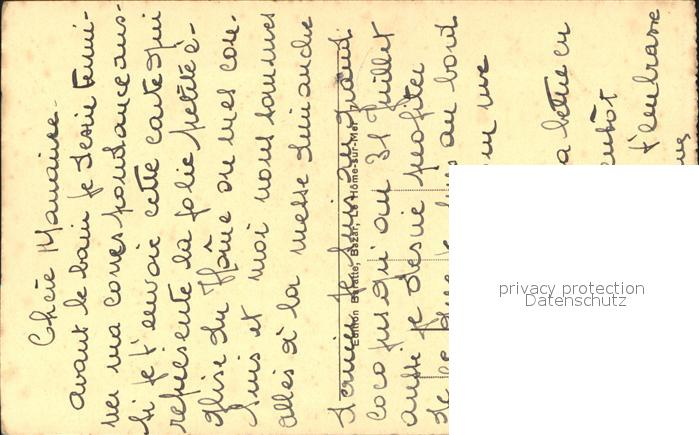 Chère Mamaine.
avant le bain je désire termi-
ner ma correspondance aus-
si je t'envoie cette carte qui
représente la jolie petite é-
glise du Hôme ou mes cou-
sins et moi nous sommes
allés à la messe dimanche
dernier. Je suis au grand
coco jusqu'au 31 Juillet
aussi je désire profiter
de la
au bord
une
la lettre
t'embrasse
Edition Bazar, Le Hôme-sur-Mer
privacy protection
Datenschutz